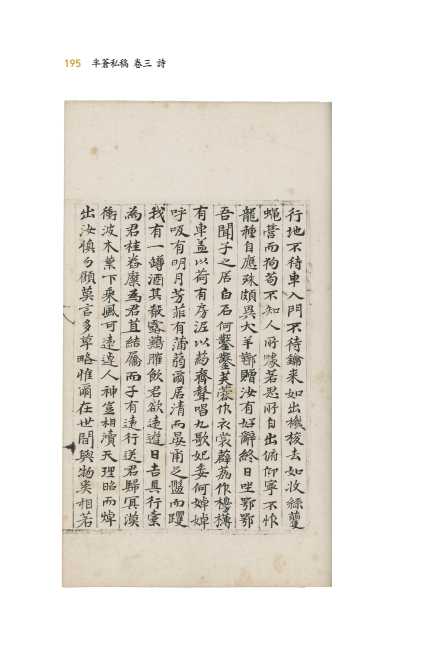 195 半蒼私稿 卷三 詩
行地不待車入門不待鑰来如出機梭去如收絲
蠅營而狗苟不知人所嫉若思所自出俯仰寧不怍
龍種自應殊頗異犬羊鄰贈汝有好辭終日坐鄂鄂
吾聞子之居白石何鑿鑿芙蓉作衣裳薜荔作
有車盖以荷有房涯以葯齊聲唱九歌妃委何婥婥
呼吸有明月芳菲有蒲蒻爾居清而晏甫之豔而躩
我有一罇酒其馥露鵝臛飲君欲遠遊日吉具行橐
為君桂眷糜為君苴結屬而子有遠行送君歸冥漠
衝波木葉下乘風可遠遠人神豈相瀆天理昭而焯
出汝慎勿傾莫言多草略惟爾在世間與物类相若